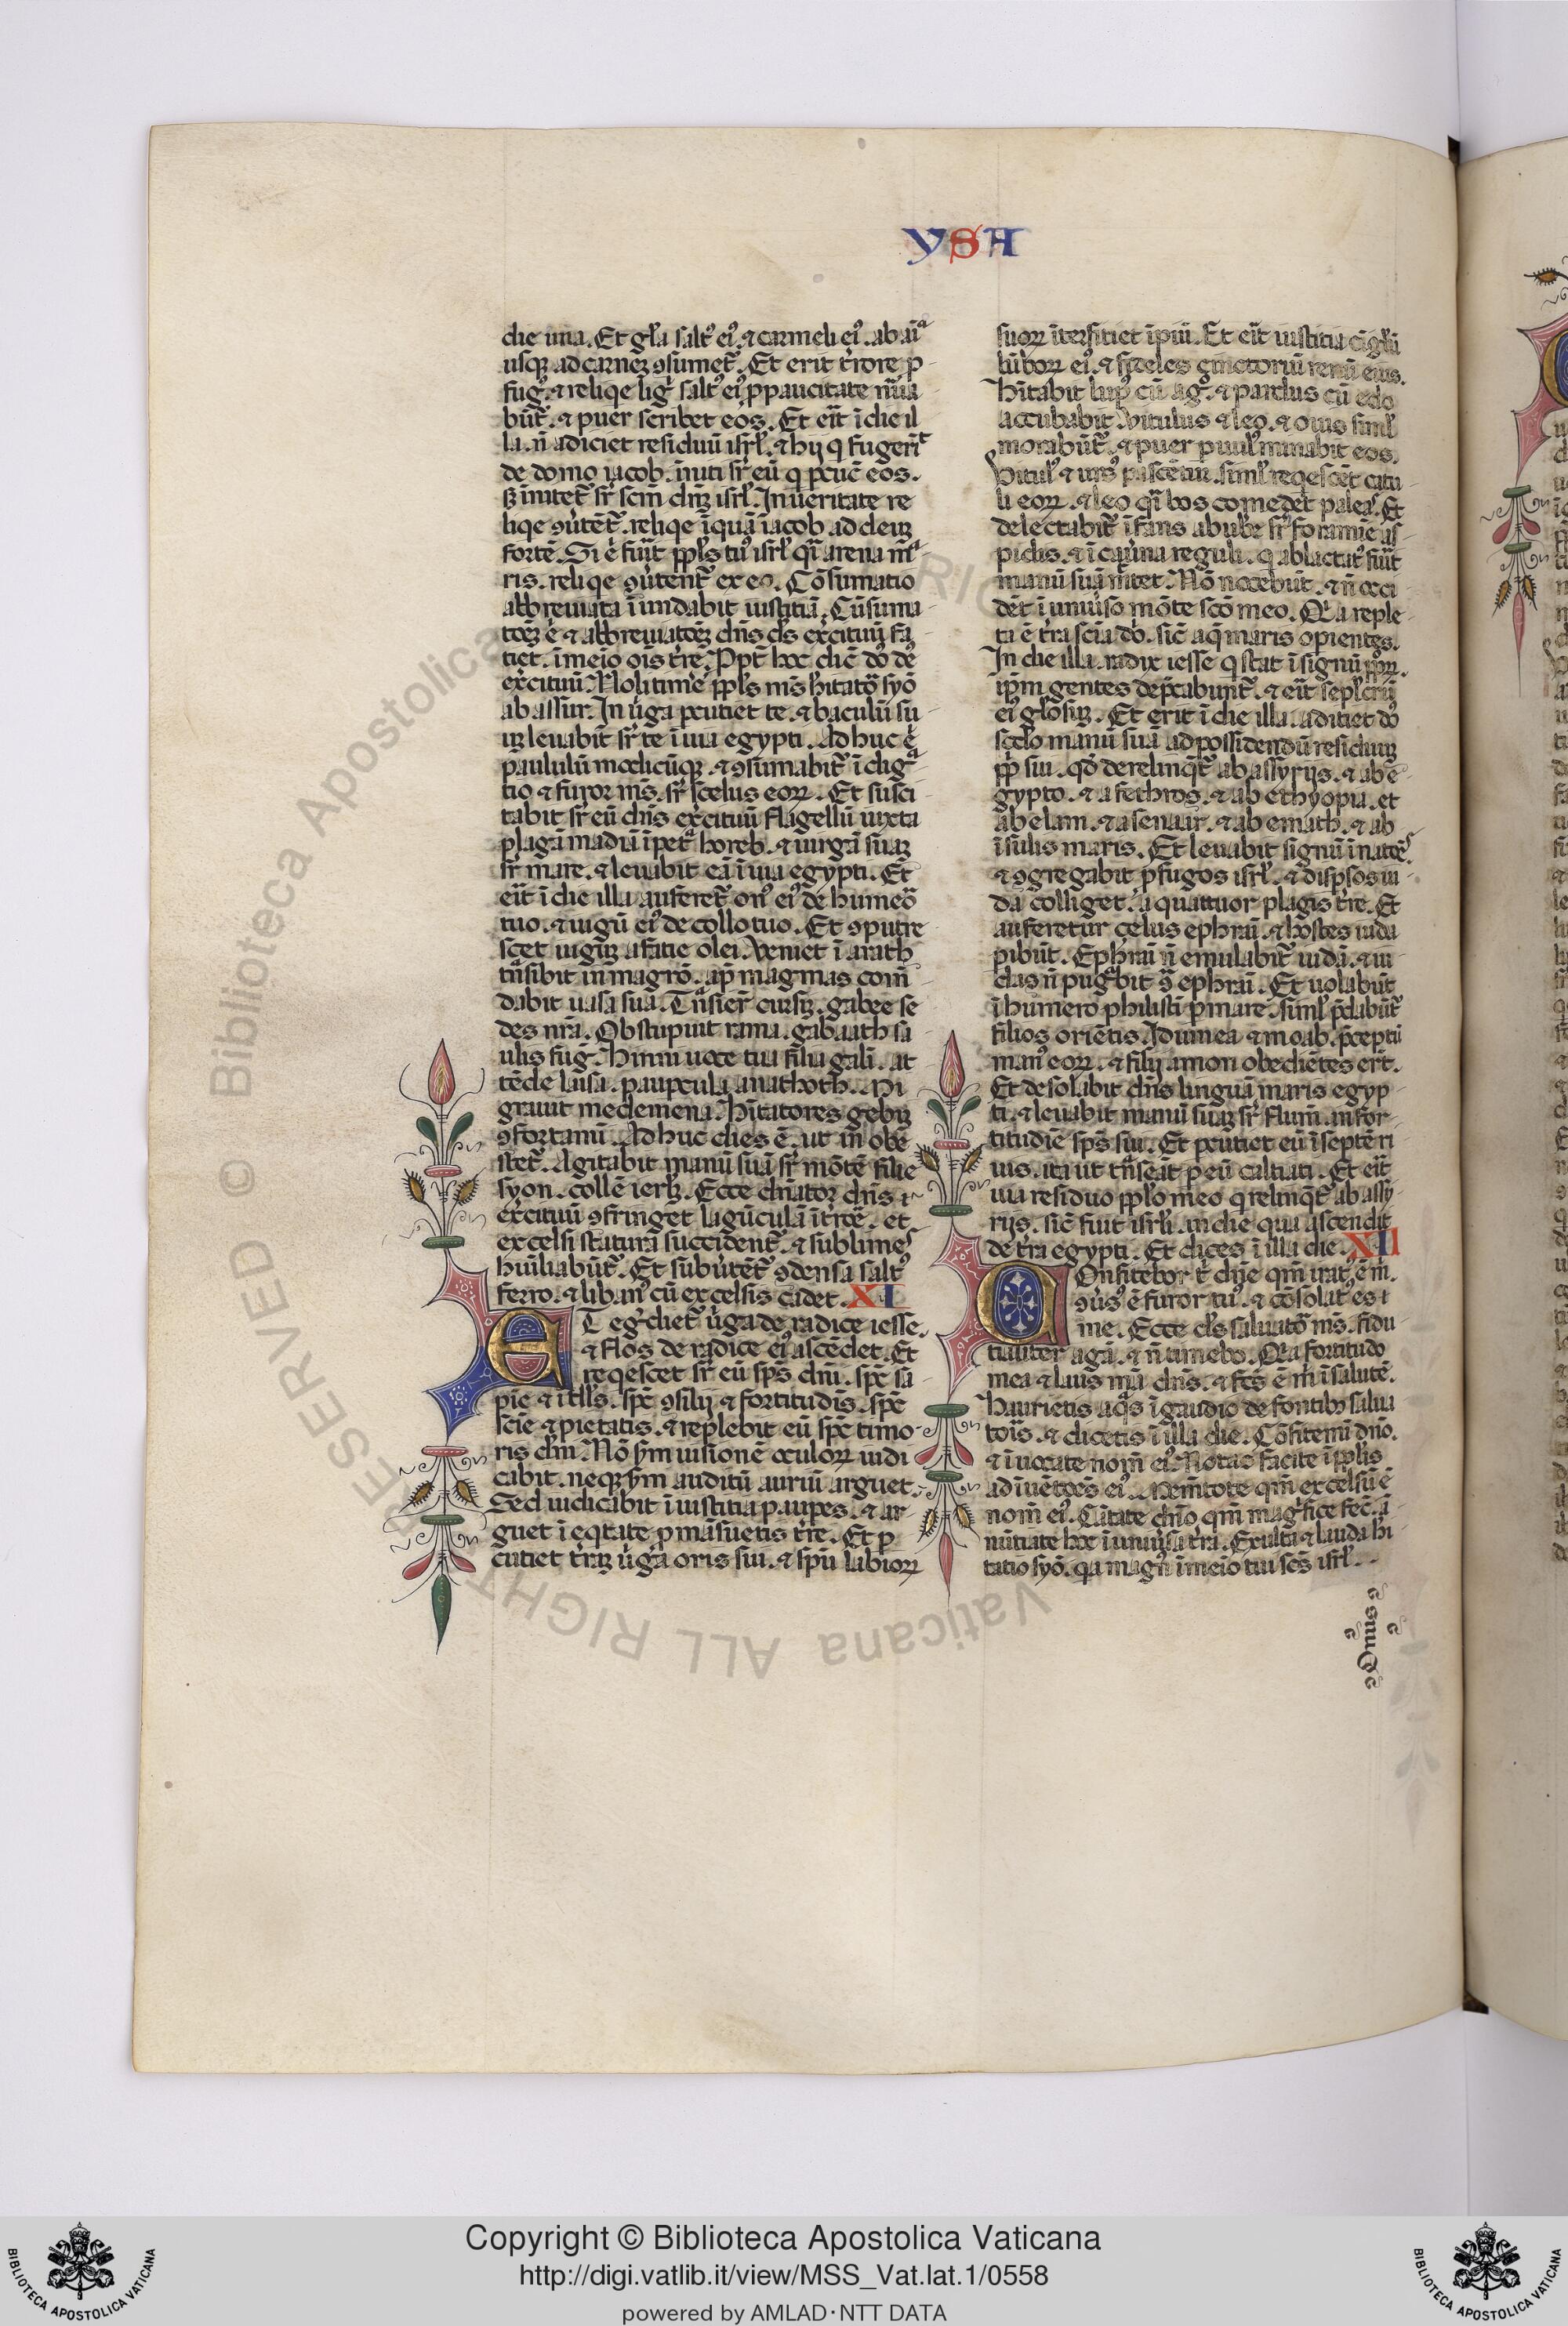 YSA
die una. Et gl̃a salt⁹ ei⁹. ⁊ carmeli ei⁹. ab aĩa
usq̃ ad carneꝫ ꝯsumet᷑. Et erit t̃rore ꝓ
fug⁹. ⁊ reliqe lig̃ salt⁹ ei⁹ p̱ paucitate nũa
bũt᷑. ⁊ puer scribet eos. Et eĩt ĩ die il
la. ñ adiciet residuũ isrl̃. ⁊ hij q̃ fugerĩt
de domo iacob. ĩniti sr̃ eũ q̃ p̱cut̃ eos.
sꝫ ĩnitet᷑ sr̃ scm̃ dñꝫ isrl̃. In ueritate re
liqe ꝯũtẽt᷑. reliqe ĩquã iacob ad deuꝫ
fortẽ. Si ẽ fuĩt ppl̃s tu⁹ isrl̃ qĩ arena mã
ris. reliqe ꝯũtent᷑ ex eo. Cõsumatio
abbreuiata ĩundabit iustitiã. Cũsuma
tõeꝫ ẽ ⁊ abbreuiatõeꝫ dñs ds̃ ex̃cituũ fa
tiet. ĩ meio oĩs tr̃e. Ppt̃ hoc dic̃ dõ de⁹
ex̃cituũ. Noli timẽ ppl̃s mš hĩtatõ syõ
ab assur. In ũga p̱cutiet te. ⁊ baculũ su
uꝫ leuabit sr̃ te ĩ uia egypti. Adhuc ẽ
paululũ modicũq̃. ⁊ ꝯsumabit᷑ ĩdig̃
tio ⁊ furor mš. sr̃ scelus eoꝝ. Et susci
tabit sr̃ eũ dñs ex̃cituũ flagellũ iuxta
plagã madiã ĩ pet̃ horeb. ⁊ uirgã suaꝫ
sr̃ mare. ⁊ leuabit eã ĩ uia egypti. Et
eĩt ĩ die illa auferet᷑ on⁹ ei⁹ de humeõ
tuo. ⁊ iugũ ei⁹ de collo tuo. Et ꝯputre
scet iugũꝫ a fatie olei. Veniet ĩ aiath
tr̃sibit in magrõ. ap̃ magmas com̃
dabit uasa sua. Tr̃sier̃ cursiꝫ. gabee se
des nrã. Obstupuit rama. gabaath sa
ulis fug̃. Hinni uoce tua filia gali. at
tẽde laisa. paup̱cula anathoth. Mi
grauit medemena. Hĩtatores gebiꝫ
ꝯfortamĩ. Adhuc dies ẽ. ut in obẽ
stet᷑. Agitabit manũ suã sr̃ mõtẽ filie
syon. collẽ ierl̃ꝫ. Ecce dñator dñs
ex̃cituũ ꝯfringet lagũculã ĩ t̃rõe. et
excelsi statura succident᷑. ⁊ sublimes
hũiliabũt᷑. Et subũtẽt᷑ ꝯdensa salt⁹
ferro. ⁊ liban⁹ cũ excelsis cadet. XI
ET eg̃diet᷑ ũga de radice iesse.
⁊ flos de radice ei⁹ ascẽdet. Et
reqescet sr̃ eũ sp̃s dñi. sp̃c sa
pĩe ⁊ ĩtlls̃. sp̃c ꝯsilij ⁊ fortitudĩs. sp̃c
scĩe ⁊ pietatis. ⁊ replebit eũ sp̃c timo
ris dñi. Nõ s̃m uisionẽ oculoꝝ iudi
cabit. neq̃ s̃m auditũ auriũ arguet.
Sed iudicabit ĩ iustitia paup̱es. ⁊ ar
guet ĩ eqtate ꝓ mãsuetis tr̃e. Et p̱
cutiet tr̃aꝫ ũga oris sui. ⁊ sp̃u labioꝝ
suoꝝ ĩtersitiet ĩpiũ. Et eĩt iustitia cĩgl̃ũ
lũboꝝ ei⁹. ⁊ fideles cĩctoriũ renũ eius.
Hĩtabit lup⁹ cũ ag̃. ⁊ pardus cũ edo
accubabit. Vitulus ⁊ leo. ⁊ ouis siml̃
morabũt᷑. ⁊ puer puul⁹ minabit eos.
Vitul⁹ ⁊ urs⁹ pascẽtur. siml̃ reqescẽt catu
li eoꝝ. ⁊ leo qĩ bos comedet paleas. Et
delectabit᷑ ĩfans ab ube sr̃ foramĩe as
pidis. ⁊ ĩ caũna reguli. q̃ ablactat⁹ fuĩt
manũ suã mĩtet. Nõ nocebũt. ⁊ ñ occi
dẽt ĩ uniũso mõte scõ meo. Qia reple
ta ẽ tr̃a scĩa dõ. sic̃ aq̃ maris opientes.
In die illa. radix iesse q̃ stat ĩ signũ pploꝝ.
ip̃m gentes dep̃cabunt᷑. ⁊ eĩt sepl̃crũ
ei⁹ gl̃osũꝫ. Et erit ĩ die illa. aditiet dõ
scdo manũ suã ad possidendũ residuuꝫ
ppl̃i sui. qõ derelinq̃t᷑ ab assyrijs. ⁊ ab e
gypto. ⁊ a fethros. ⁊ ab ethyopia. et
ab elam. ⁊ a senaar. ⁊ ab emath. ⁊ ab
ĩsulis maris. Et leuabit signũ ĩ natões.
⁊ ꝯgregabit ꝓfugos isrl̃. ⁊ disp̱sos iu
da colliget. a quattuor plagis tr̃e. Et
auferetur çelus ephraĩ. ⁊ hostes iuda
pibũt. Ephraĩ ñ emulabit᷑ iudã. ⁊ iu
das ñ pug̃bit ꝯ̃ ephraĩ. Et uolabũt
ĩ humero philisti p̱ mare. siml̃ p̃dabũt᷑
filios oriẽtis. Idumea ⁊ moab. p̃ceptũ
man⁹ eoꝝ. ⁊ filij amon obediẽtes ert̃.
Et desolabit dñs linguã maris egyp
ti. ⁊ leuabit manũ suaꝫ sr̃ flum̃. in for
titudĩe sp̃s sui. Et p̱cutiet eũ ĩ septẽ ri
uis. ita ut tr̃seãt p̱ eũ caltiati. Et eĩt
uia residuo ppl̃o meo q̃ relinq̃t᷑ ab assy
rijs. sic̃ fuit isrl̃i. in die qua ascendit
de tr̃a egypti. Et dices ĩ illa die. XII
COnfitebor t̃ dñe qm̃ irat⁹ ẽ m̃.
ꝯũs⁹ ẽ furor tu⁹. ⁊ cõsolat⁹ es
me. Ecce ds̃ saluatõ mš. fidu
tialiter agã. ⁊ ñ timebo. Qia fortitudo
mea ⁊ laus mã dñs. ⁊ fcs̃ ẽ m̃ ĩ salutẽ.
Haurietis aq̃s ĩ gaudio de fontibꝫ salua
toĩs. ⁊ dicetis ĩ illa die. Cõfitemĩ dño.
⁊ ĩuocate nom̃ ei⁹. Notas facite ĩ ppl̃is
adĩuẽtões ei⁹. Mem̃tote qm̃ excelsũ ẽ
nom̃ ei⁹. Cãtate dño qm̃ mag̃fice fec̃. ã
nũtiate hoc ĩ uniũsa tr̃a. Exulta ⁊ lauda hĩ
tatio syõ. qa magn⁹ ĩ meio tui scš isrl̃.
Onus
Copyright © Biblioteca Apostolica Vaticana
http://digi.vatlib.it/view/MSS_Vat.lat.1/0558
powered by AMLAD·NTT DATA
BIBLIOTECA APOSTOLICA VATICANA
BIBLIOTECA APOSTOLICA VATICANA
© Biblioteca Apostolica Vaticana ALL RIGHTS RESERVED